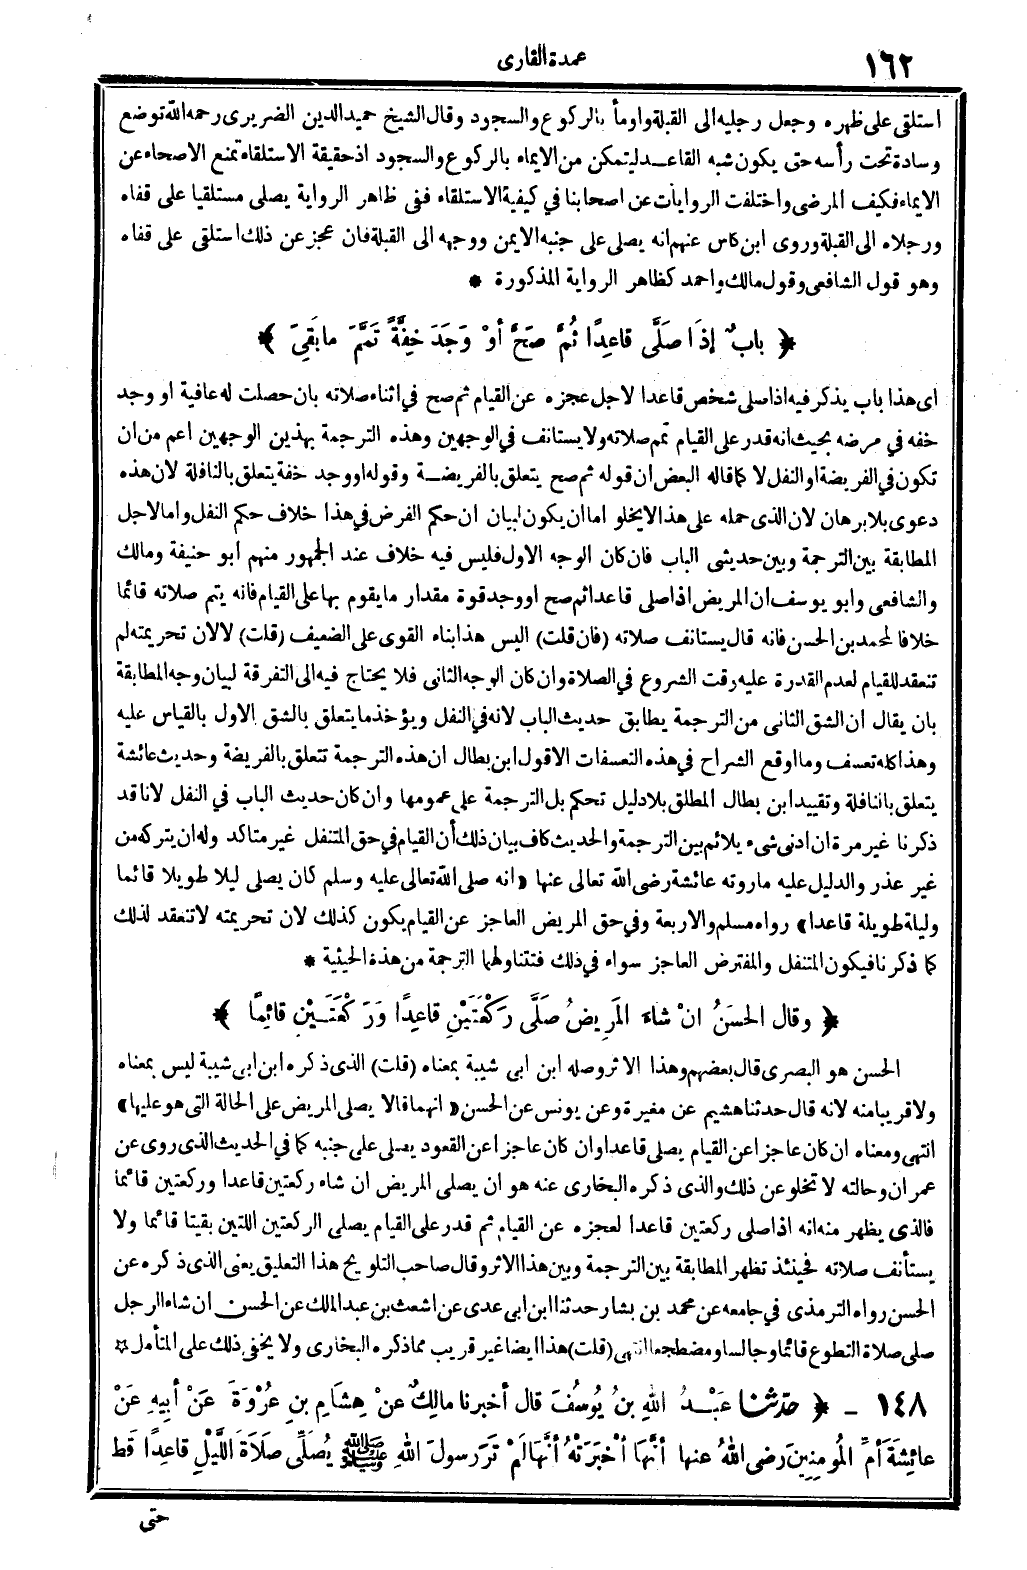 ١٦٢
عمدة القارى
استلقى على ظهره وجعل رجليه الى القبلة واومأ بالركوع والسجود وقال الشيخ حميد الدين الضريرى رحمه الله توضع
وسادة تحت رأسه حتى يكون شبه القاعد ليتمكن من الايماء بالركوع والسجود اذ حقيقة الاستلقاء تمنع الاصحاء عن
الايماء فكيف المرضى واختلفت الروايات عن اصحابنا في كيفية الاستلقاء ففى ظاهر الرواية يصلى مستلقيا على قفاه
ورجلاه الى القبلة وروى ابن كاس عنهم انه يصلى على جنبه الايمن ووجهه الى القبلة فان عجز عن ذلك استلقى على قفاه
وهو قول الشافعى وقول مالك واحمد كظاهر الرواية المذكورة *
﴿ بابٌ إذَا صَلَّى قاعِدًا ثُمَّ صَحَّ أوْ وَجَدَ خِفَّةً تَمَّمَ مابَقِيَ ﴾
اى هذا باب يذكر فيه اذا صلى شخص قاعدا لاجل عجزه عن القيام ثم صح في اثناء صلاته بان حصلت له عافية او وجد
خفه في مرضه بحيث انه قدر على القيام تمم صلاته ولا يستانف في الوجهين وهذه الترجمة بهذين الوجهين اعم من ان
تكون في الفريضة او النفل لا كما قاله البعض ان قوله ثم صح يتعلق بالفريضة وقوله او وجد خفة يتعلق بالنافلة لان هذه
دعوى بلا برهان لان الذى حمله على هذا لايخلو اما ان يكون لبيان ان حكم الفرض في هذا خلاف حكم النفل واما لاجل
المطابقة بين الترجمة وبين حديثى الباب فان كان الوجه الاول فليس فيه خلاف عند الجمهور منهم ابو حنيفة ومالك
والشافعى وابو يوسف ان المريض اذا صلى قاعدا ثم صح او وجد قوة مقدار ما يقوم بها على القيام فانه يتم صلاته قائما
خلافا لمحمد بن الحسن فانه قال يستانف صلاته (فان قلت) اليس هذا بناء القوى على الضعيف (قلت) لا لان تحريمته لم
تنعقد للقيام لعدم القدرة عليه وقت الشروع في الصلاة وان كان الوجه الثانى فلا يحتاج فيه الى التفرقة لبيان وجه المطابقة
بان يقال ان الشق الثانى من الترجمة يطابق حديث الباب لانه في النفل ويؤخذ ما يتعلق بالشق الاول بالقياس عليه
وهذا كله تعسف وما اوقع الشراح في هذه التعسفات الا قول ابن بطال ان هذه الترجمة تتعلق بالفريضة وحديث عائشة
يتعلق بالنافلة وتقييد ابن بطال المطلق بلا دليل تحكم بل الترجمة على عمومها وان كان حديث الباب في النفل لانا قد
ذكرنا غير مرة ان ادنى شىء يلائم بين الترجمة والحديث كاف بيان ذلك أن القيام في حق المتنفل غير متاكد وله ان يتركه من
غير عذر والدليل عليه ماروته عائشة رضى الله تعالى عنها «انه صلى الله تعالى عليه وسلم كان يصلى ليلا طويلا قائما
وليلة طويلة قاعدا» رواه مسلم والاربعة وفي حق المريض العاجز عن القيام يكون كذلك لان تحريمته لا تنعقد لذلك
كما ذكرنا فيكون المتنفل والمفترض العاجز سواء في ذلك فتتناولهما الترجمة من هذه الحيثية *
﴿ وقال الحسَنُ انْ شاءَ المَرِيضُ صَلَّى رَكْعَتَيْنِ قاعِدًا وَرَكْعَتَيْنِ قائِمًا ﴾
الحسن هو البصرى قال بعضهم وهذا الاثر وصله ابن ابى شيبة بمعناه (قلت) الذى ذكره ابن ابى شيبة ليس بمعناه
ولا قريبا منه لانه قال حدثنا هشيم عن مغيرة وعن يونس عن الحسن «انهما قالا يصلى المريض على الحالة التى هو عليها»
انتهى ومعناه ان كان عاجزا عن القيام يصلى قاعدا وان كان عاجزا عن القعود يصلى على جنبه كما في الحديث الذى روى عن
عمران وحالته لا تخلو عن ذلك والذى ذكره البخارى عنه هو ان يصلى المريض ان شاء ركعتين قاعدا وركعتين قائما
فالذى يظهر منه انه اذا صلى ركعتين قاعدا لعجزه عن القيام ثم قدر على القيام يصلى الركعتين اللتين بقيتا قائما ولا
يستأنف صلاته فحينئذ تظهر المطابقة بين الترجمة وبين هذا الاثر وقال صاحب التلويح هذا التعليق يعنى الذى ذكره عن
الحسن رواه الترمذى في جامعه عن محمد بن بشار حدثنا ابن ابى عدى عن اشعث بن عبد الملك عن الحسن ان شاء الرجل
صلى صلاة التطوع قائما وجالسا ومضطجعا انتهى (قلت) هذا ايضا غير قريب مما ذكره البخارى ولا يخفى ذلك على المتأمل *
١٤٨ - ﴿ حدّثنا عَبْدُ اللهِ بنُ يُوسُفَ قال أخبرنا مالِكٌ عنْ هِشَامِ بنِ عُرْوَةَ عَنْ أبِيهِ عَنْ
عائِشَةَ أمِّ المُومِنِينَ رضى اللهُ عنها أنَّهَا أخْبَرَتْهُ أنَّهَا لَمْ تَرَ رسولَ اللهِ ﷺ يُصَلِّى صَلَاةَ اللَّيْلِ قاعِدًا قَط
حتى